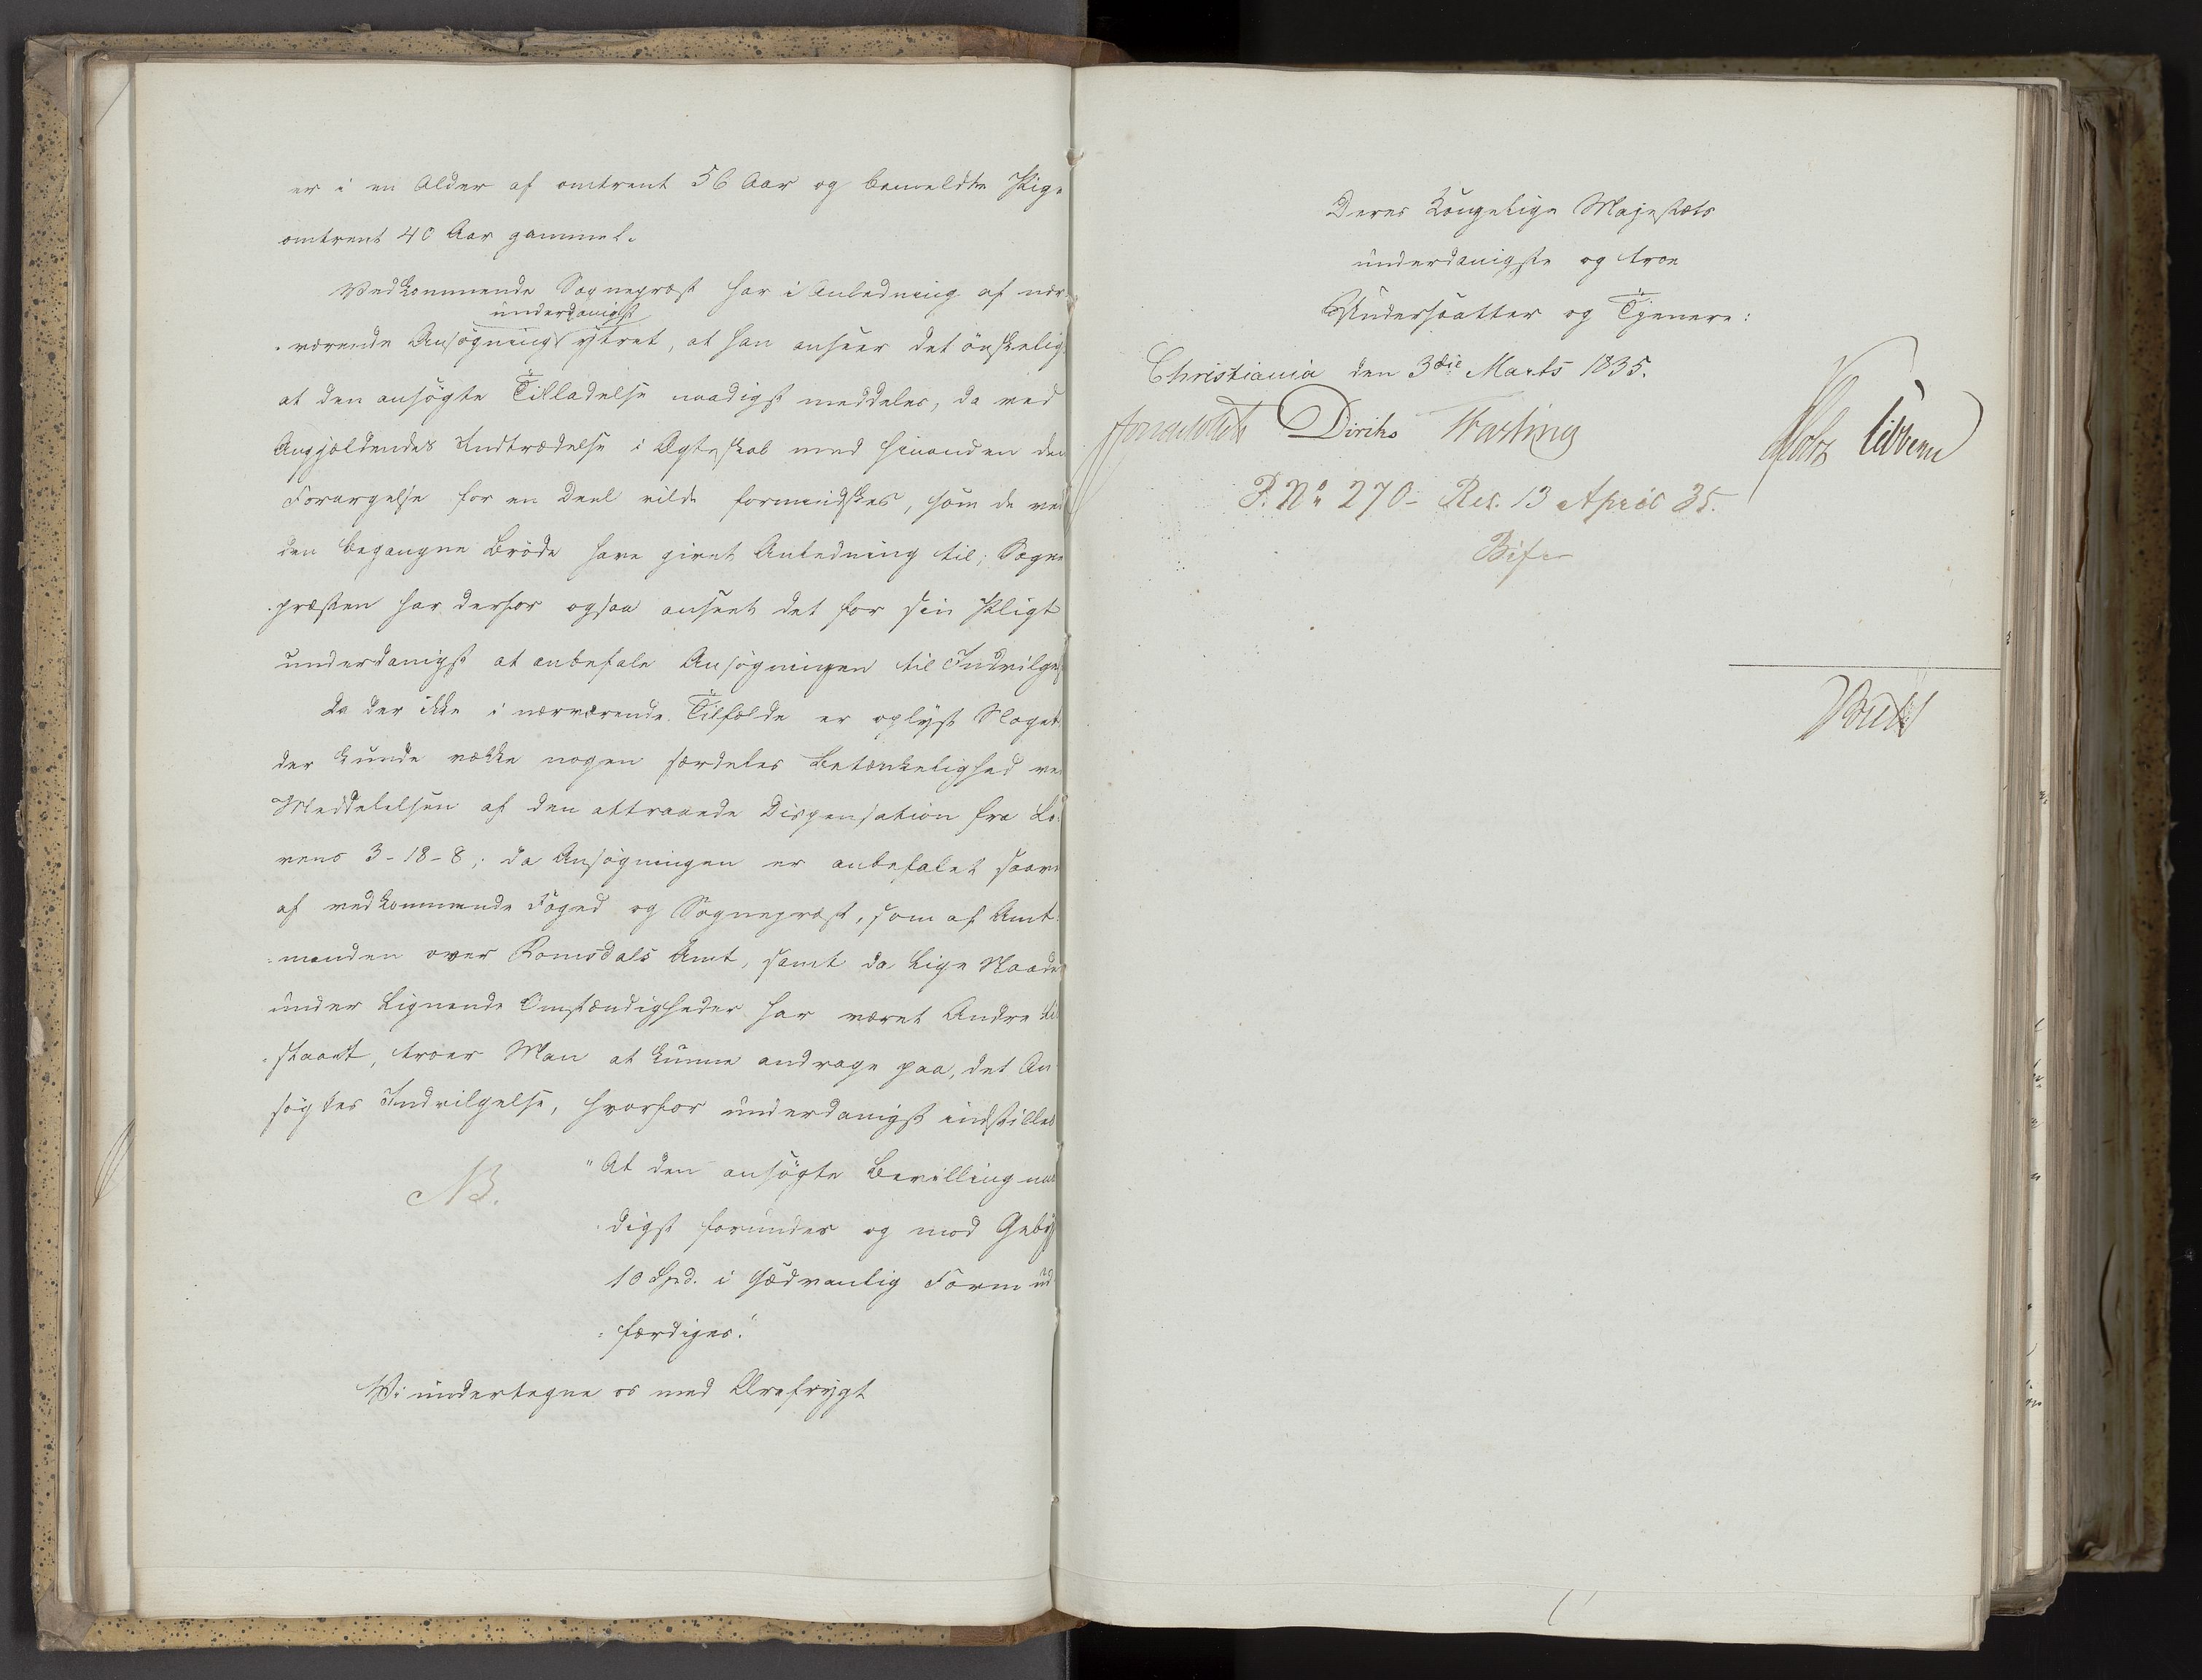 er i en Alder af omtrent 56 Aar og bemeldte Pige
omtrent 40 Aar gammel.
Vedkommende Sognepræst har i Anledning af nær-
underdanigst
værende Ansøgning ytret, at han anseer det ønskelig
at den ansøgte Tilladelse naadigst meddeles, da ved
Angjældendes Indtrædelse i Ægteskab med hinanden den
Forargelse for en Deel vilde formindskes, som de ved
den begangne Brøde have givet Anledning til; Sogne
præsten har derfor ogsaa anseet det for sin Pligt
underdanigst at anbefale Ansøgningen til Indvilgels
Da der ikke i nærværende Tilfælde er oplyst Noget
der kunde vække nogen særdeles Betænkelighed ved
Meddelelsen af den attraaede Dispensation fra Lo-
vens 3-18-8; da Ansøgningen er anbefalet saavel
af vedkommende Foged og Sognepræst, som af Amt-
manden over Romsdals Amt, samt da lige Naade
under lignende Omstændigheder har været Andre til
staaet, troer Man at kunne andrage paa, det An
søgtes Indvilgelse, hvorfor underdanigst indstilles
"At den ansøgte Bevilling naa
NB.
digst forundes og mod Gebyr
10 Spd. i sædvanlig Form ud
færdiges."
Vi undertegne os med Ærefrygt
Deres Kongelige Majestæts
underdanigste og troe
Undersaatter og Tjenere:
Christiania den 3die Marts 1835.
Diriks Fasting
Vibbern
P. No 270- Res. 13 April 35.
Bif.